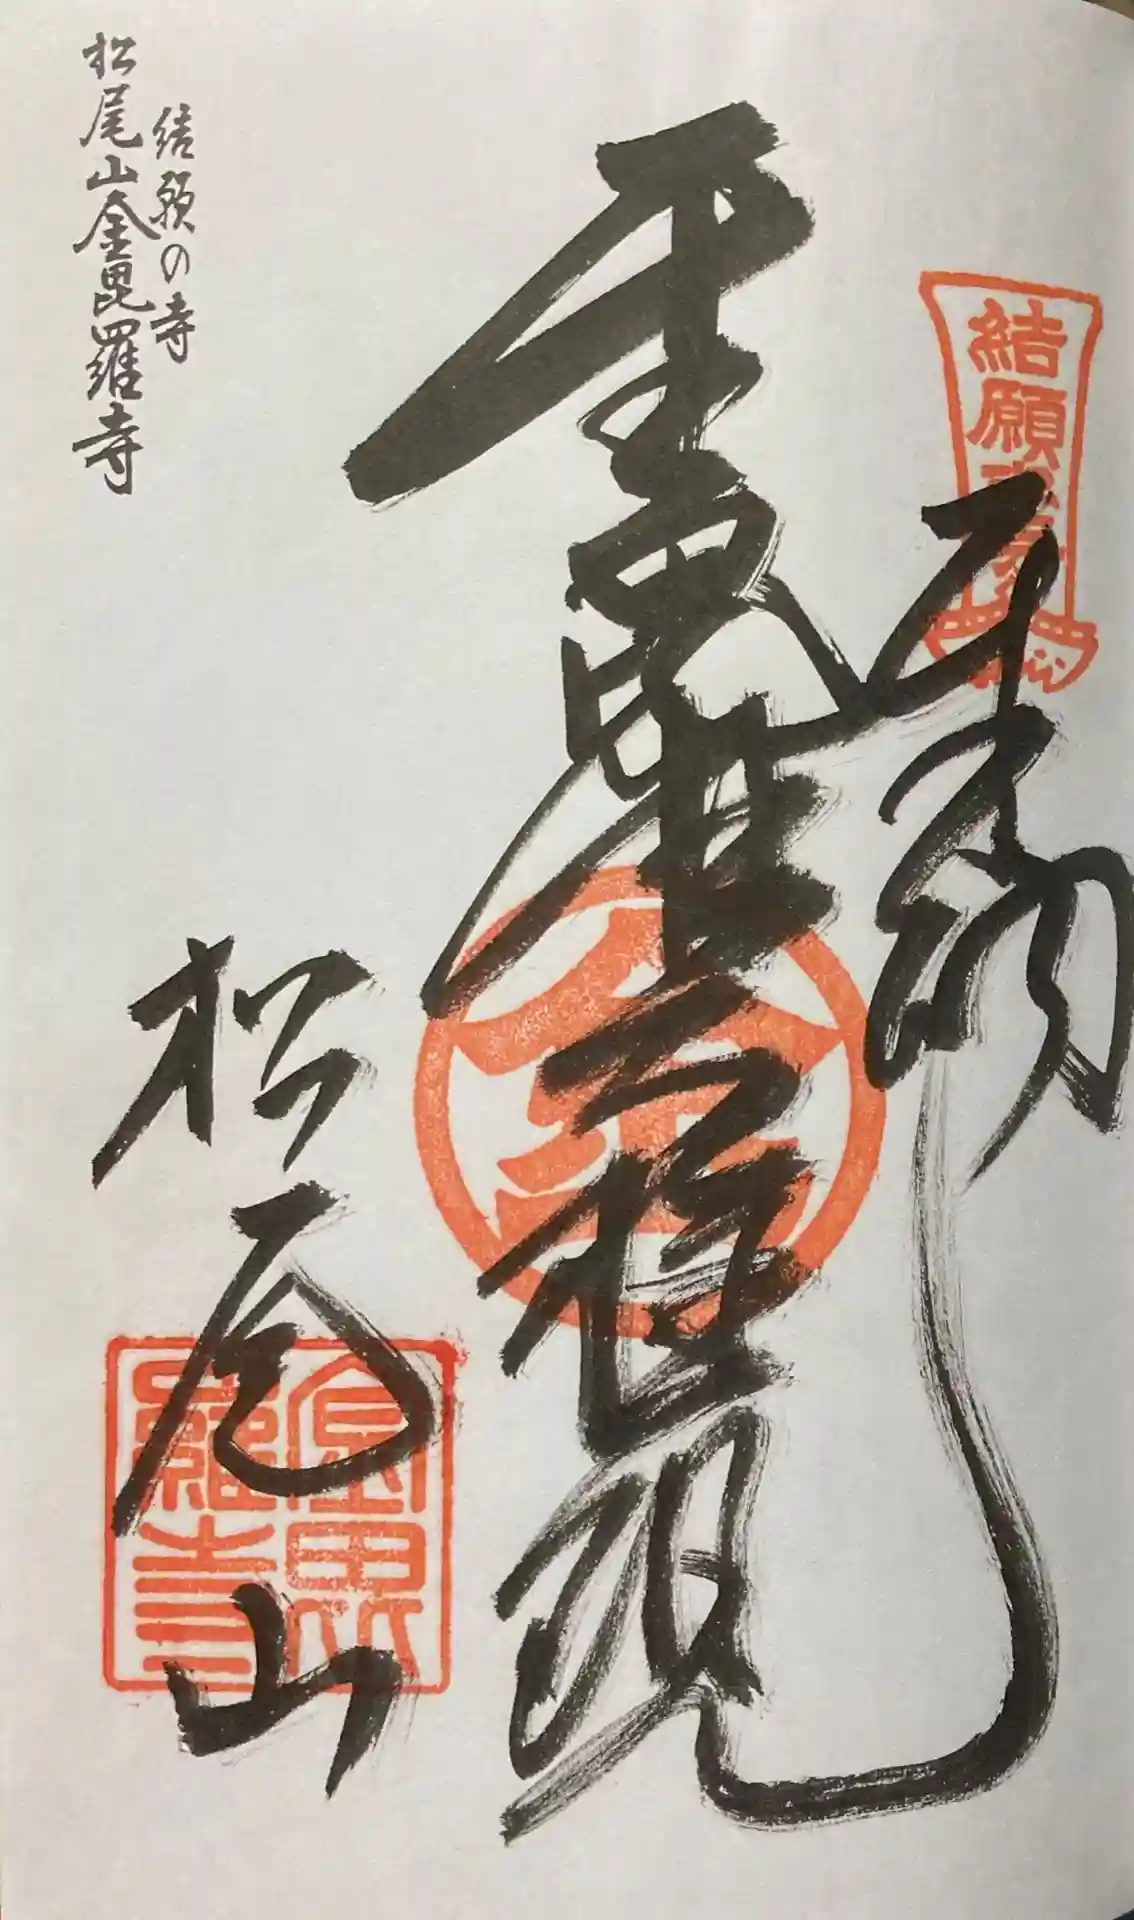 結願
金毘羅大権現
松尾山
金毘
羅寺
結願の寺
松尾山金毘羅寺